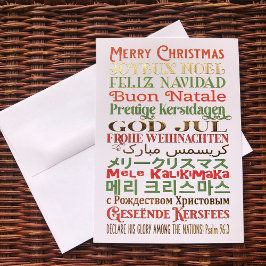 Merry Christmas
JOYEUX NOËL
FELIZ NAVIDAD
Buon Natale
Prettige Kerstdagen
GOD JUL
FROHE WEIHNACHTEN
كريسمس مبارك
メリークリスマス
Mele Kalikimaka
메리 크리스마스
с Рождеством Христовым
Geseënde Kersfees
DECLARE HIS GLORY AMONG THE NATIONS! Psalm 96:3